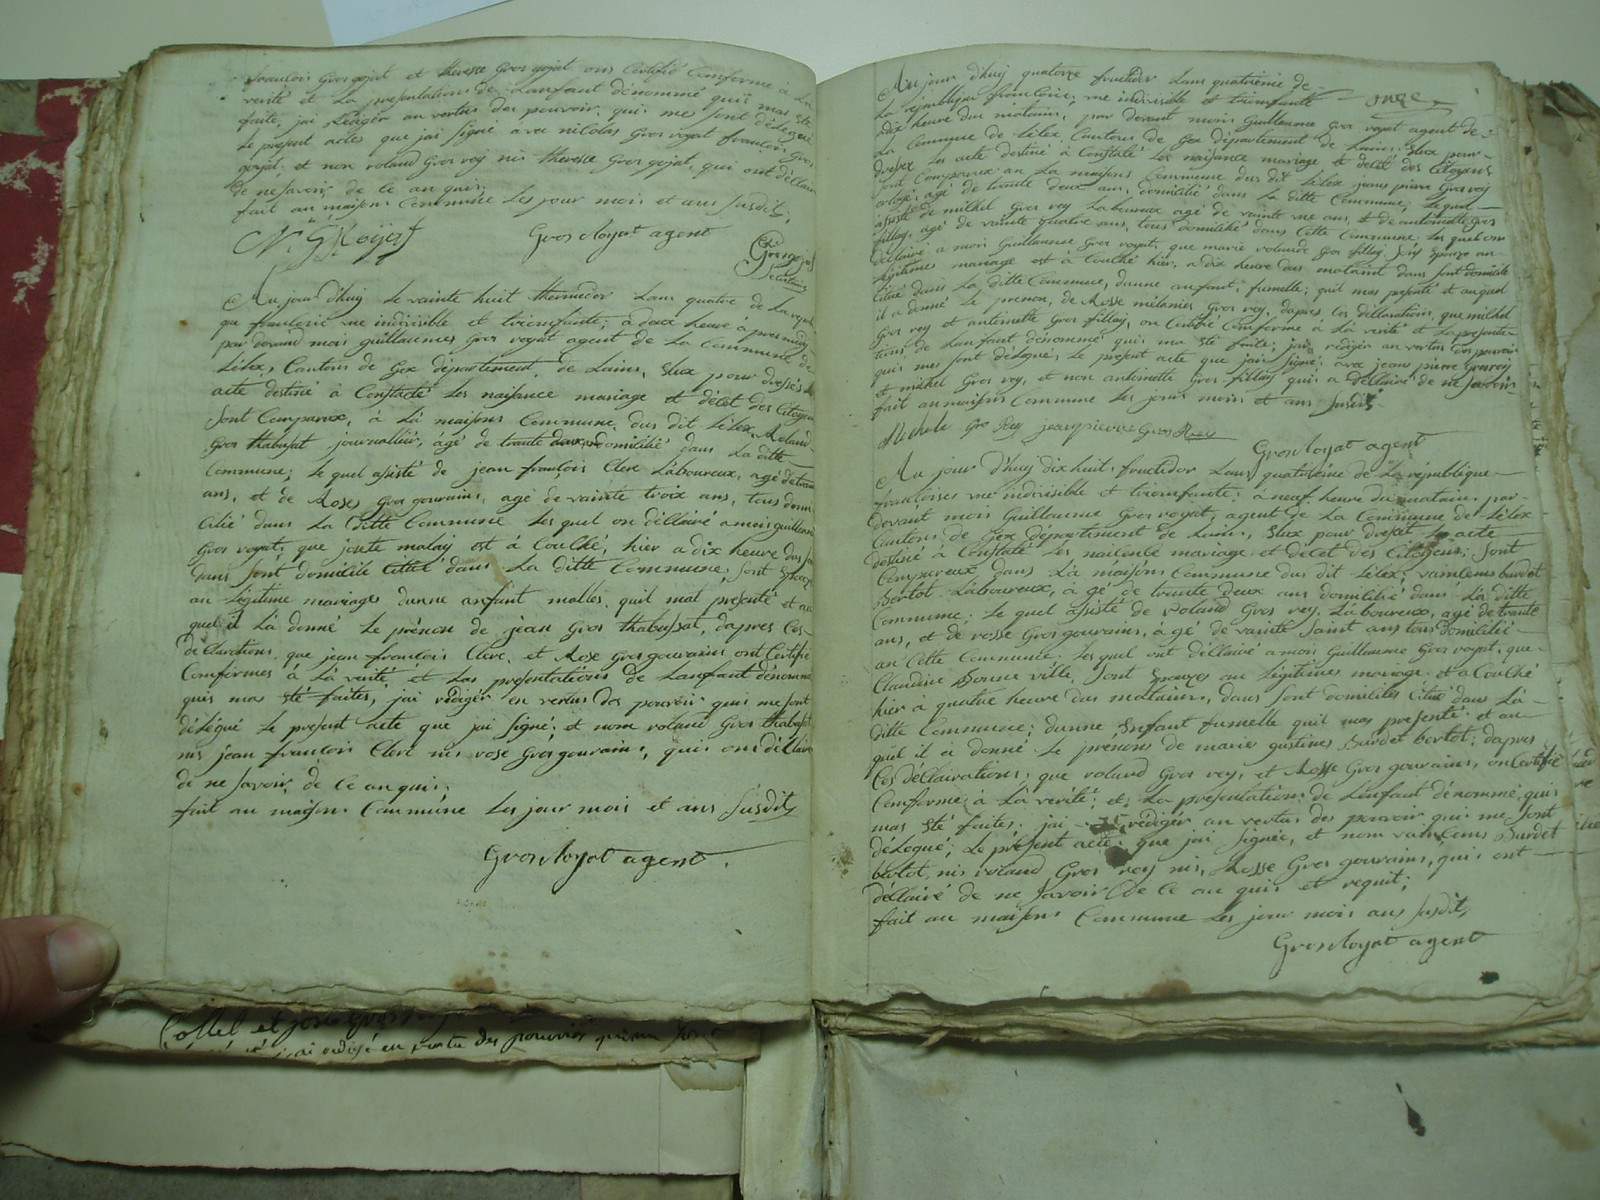 francois Gros gojat et theresse Gros gojat ons Certifié Comforme à La
verité et La presentations de Lanfant dénommé quis mas été
faite, jai Rédiger an vertus des pouvoir quis me sont délégué
Le present actes que jai signé avec nicolas Gros royat francois Gros
gojat et non roland Gros roy nis theresse Gros gojat, qui ont déllairé
de ne savoir de Ce an quis;
fait au maison Commune Les jour mois et ans susdits,
N. G Royat Gros Royat agent
Grosgojat
Secretaire
Au jour d'huy Le vainte huit thermidor Lans quatre de La repu-
que francoise une indivisible et triomfante; a deux heure à pres midy
par devand mois guillaumes Gros royat agent de La Commune de
Lélex, Cantons de Gex département de Lains, Elux pour dressés les
acte destiné à Constaté Les naisence mariage et décet des Citoyens
sont Comparux, à Là maisons Commune dus dit Lélex, Roland
Gros thabusat journallier, âgé de trante deux domicilié dans La ditte
Commune; le quel assisté de jean francois Clerc Laboureux, agé de trante
ans, et de Roses Gros gourains, agé de vainte troix ans, tous domi-
cilié dans La ditte Commune les quel on déllairé a mois guillaume
Gros royat, que josete malay est à Coulhé, hier a dix heure dus soir
dans sont domicile Citué dans La ditte Commune; sont Epouze
an Légitime mariages dunne anfant malles quil mat presenté et au
quel il Là donné Le prénon de jean Gros thabussat, dapres Ces
déClarations que jean francois Clerc, et Rose Gros gourains ont Certifié
Comformes à Là verité et Las presentations de Lanfant dénommé
quis mas été faites; jai rédiger en vertus des pouvoir quis me sont
délégué Le present acte que jai signé, et nom roland Gros thabusat
nis jean francois Clerc nis rose Gros gourains, quis ons déllairé
de ne savoir de Ce an quis;
fait au maison Commune Les jour mois et ans susdits
Gros Royat agent.
Collet et josete Gros
jai rédigé en vertu des pouvoirs qui me sont
Au jour d'huy quatorze fructidor Lans quatriéme de
La republique francoise, une indivisible et triomfante onze
dix heure dus matains, par devant mois Guillaume Gros royat agent de
La Commune de Lélex Cantons de Gex département de Lains, Elux pour
dresser Les acte destiné à Constaté Les naisance mariage et décét des Citoyens
sont Comparux an La maisons Commune dus dit Lélex jeans pierre Gros roy
agé de trante deux ans, domicilié dans La ditte Commune, Le quel
assisté de michel Gros roy Laboureux agé de vainte une ans, et de antoinette Gros
fillay, agé de vainte quatre ans, tous domicilié dans Cette Commune Les quel on
déllairé a mois Guillaumes Gros royat, que marie rolande Gros fillay son Epouze an
légitimes mariage est à Coulhé hier, a dix heure dus matains dans sont domicile
Citué dans La ditte Commune, dunne anfant fumelle, quil mas présenté et au quel
il a donné Le prenon, de Rosse mélanies Gros roy, dapres Ces déclarations que michel
Gros roy et antoinette Gros fillay, on Certifié Comforme à La verité et La présenta-
tions de Lanfant dénommé quis ma été faite; jais rédiger an vertus des pouvoir
quis mes sont délégué, Le present acte que jais signé; avec jean pierre Gros roy
et michel Gros roy, et non antoinette Gros fillay quis a déllairé de ne savoir
fait au maisons Commune Les jours mois et ans susdits
Michele Gro Roy jeanpierre Gros Roy
Gros Royat agent
Au jour d'huy dix huit fructidor Lans quatriéme de La republique
francoises une indivisible et triomfante; a neuf heure du matains par
devant mois Guillaume Gros royat, agent de La Commune de Lélex
Cantons de Gex département de Lains, Elux pour dressét les acte
destiné à Constaté Les naisence mariage et decet des Citoyens; sont
Compareux dans Là maisons Commune dus dit Lélex; vainsens burdet
Bertot Laboureux, à gé de trante deux ans domicilié dans Là ditte
Commune; Le quel assisté de roland Gros roy, Laboureux, agé de trante
ans, et de rosse Gros gourains, à gé de vainte saint ans tous domicilié
an Cette Commune. Les quel ont déllairé a mois Guillaume Gros royat, que
Claudine Bonne ville, sont Epouzes an Légitimes mariage est a Coulhé
hier a quatre heure dus matains, dans sont domicilés Citué dans Là
ditte Commune; dunne Enfant fumelle quil mas présenté et au
quel il a donné Le prénons de marie justines Burdet bertot; dapres
Ces déllairations; que roland Gros roy, et Rosse Gros gourains, on Certifié
Comforme à Là verité; et; La presentations de Lanfant dénommé, quis
mas été faites. jai rédigér an vertus des pouvoir quis me sont
délégué; Le present acte que jai signée, et nom vainsens Burdet
bertot, nis roland Gros roy nis, Rosse Gros gourains, quis ont
déllairé de ne savoir De Ce an quis et requit;
fait au maisons Commune Les jour mois ans susdits
Gros Royat agent